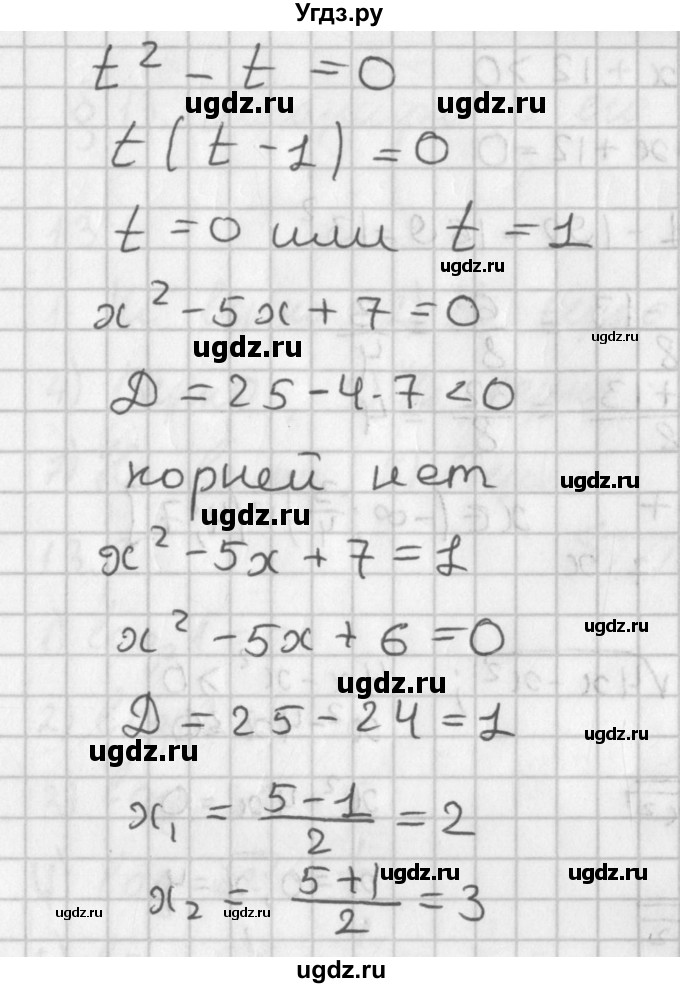 Угдз.ру
t² - t = 0
ugdz.ru ugdz.ru
t(t - 1) = 0
t = 0 или t = 1
ugdz.ru
x² - 5x + 7 = 0
ugdz.ru
ugdz.ru
Д = 25 - 4·7 < 0
корней нет
ugdz.ru
ugdz.ru
x² - 5x + 7 = 1
x² - 5x + 6 = 0
ugdz.ru
ugdz.ru
Д = 25 - 24 = 1
ugdz.ru
ugdz.ru
x₁ = (5 - 1)/2 = 2
ugdz.ru ugdz.ru
x₂ = (5 + 1)/2 = 3
ugdz.ru ugdz.ru
ugdz.ru